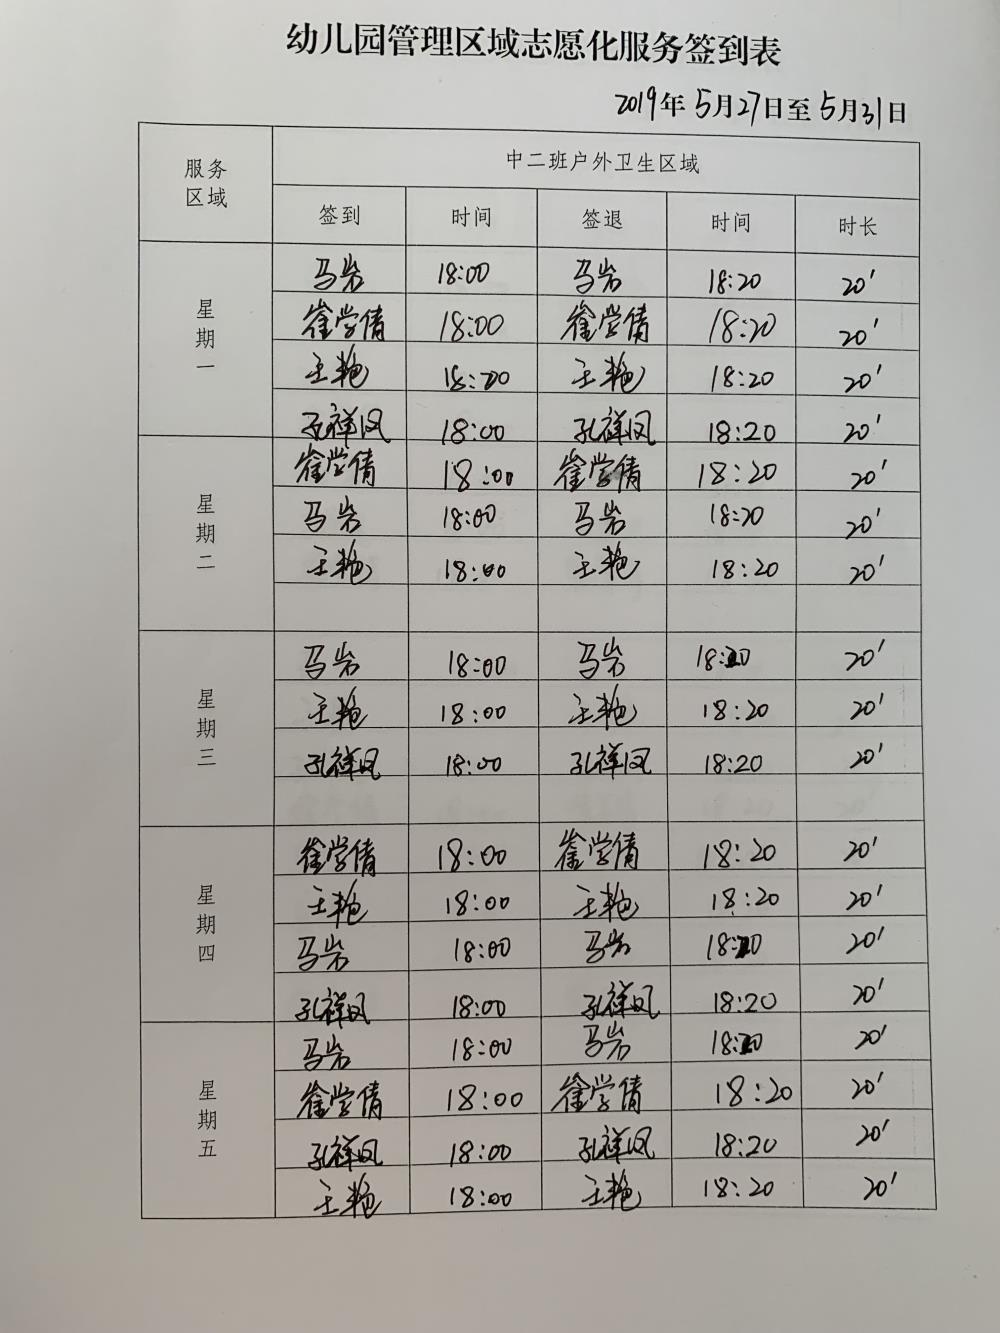 幼儿园管理区域志愿化服务签到表
2019年 5月27日至5月31日
服务区域 中二班户外卫生区域
签到 时间 签退 时间 时长
星期一
马岩 18:00 马岩 18:20 20'
崔学倩 18:00 崔学倩 18:20 20'
王艳 18:00 王艳 18:20 20'
孔祥凤 18:00 孔祥凤 18:20 20'
星期二
崔学倩 18:00 崔学倩 18:20 20'
马岩 18:00 马岩 18:20 20'
王艳 18:00 王艳 18:20 20'
星期三
马岩 18:00 马岩 18:20 20'
王艳 18:00 王艳 18:20 20'
孔祥凤 18:00 孔祥凤 18:20 20'
星期四
崔学倩 18:00 崔学倩 18:20 20'
王艳 18:00 王艳 18:20 20'
马岩 18:00 马岩 18:20 20'
孔祥凤 18:00 孔祥凤 18:20 20'
星期五
马岩 18:00 马岩 18:20 20'
崔学倩 18:00 崔学倩 18:20 20'
孔祥凤 18:00 孔祥凤 18:20 20'
王艳 18:00 王艳 18:20 20'